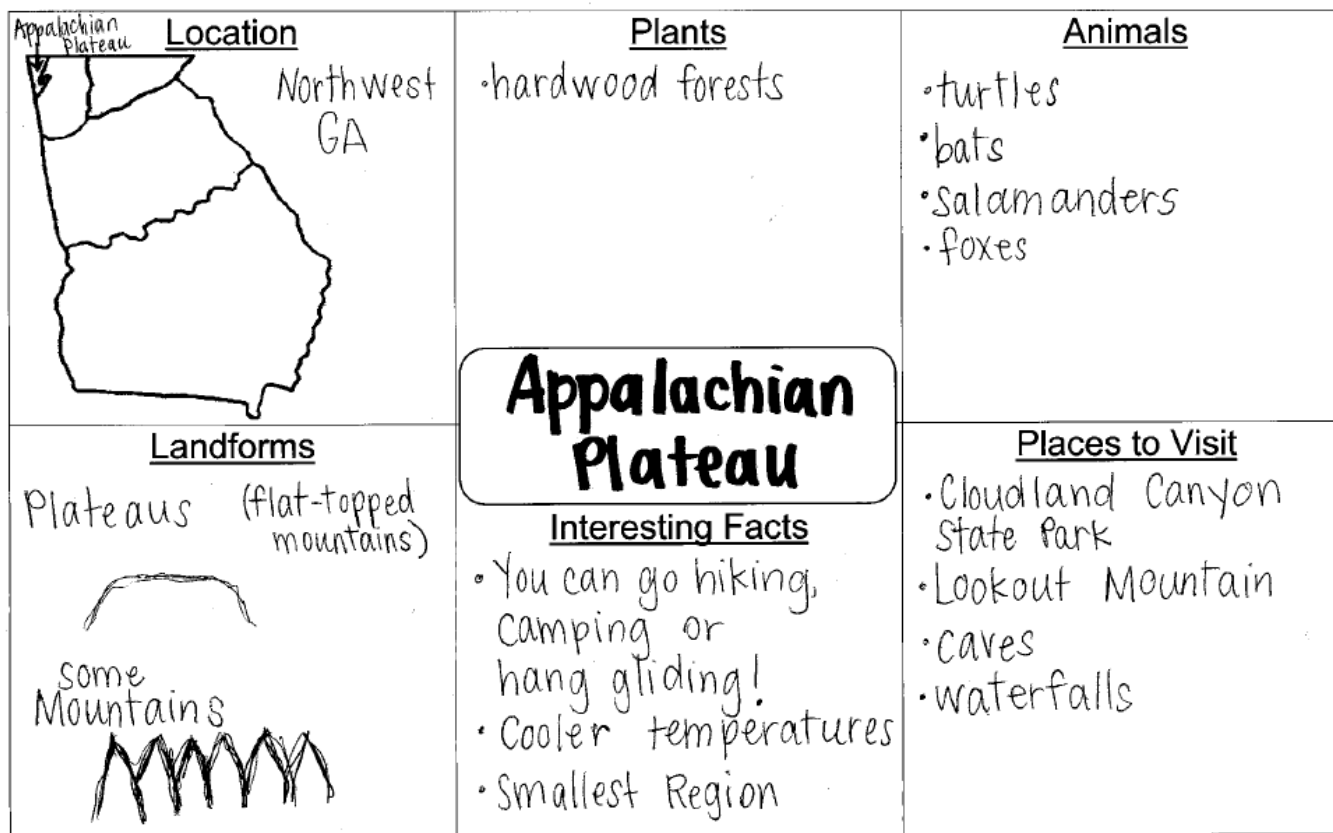 Appalachian
Plateau
Location
Northwest
GA
Plants
•hardwood forests
Animals
•turtles
•bats
•salamanders
•foxes
Appalachian
Plateau
Landforms
Plateaus (flat-topped
mountains)
some
Mountains
Interesting Facts
•You can go hiking,
camping or
hang gliding!
•Cooler temperatures
•Smallest Region
Places to Visit
•Cloudland Canyon
State Park
•Lookout Mountain
•caves
•waterfalls